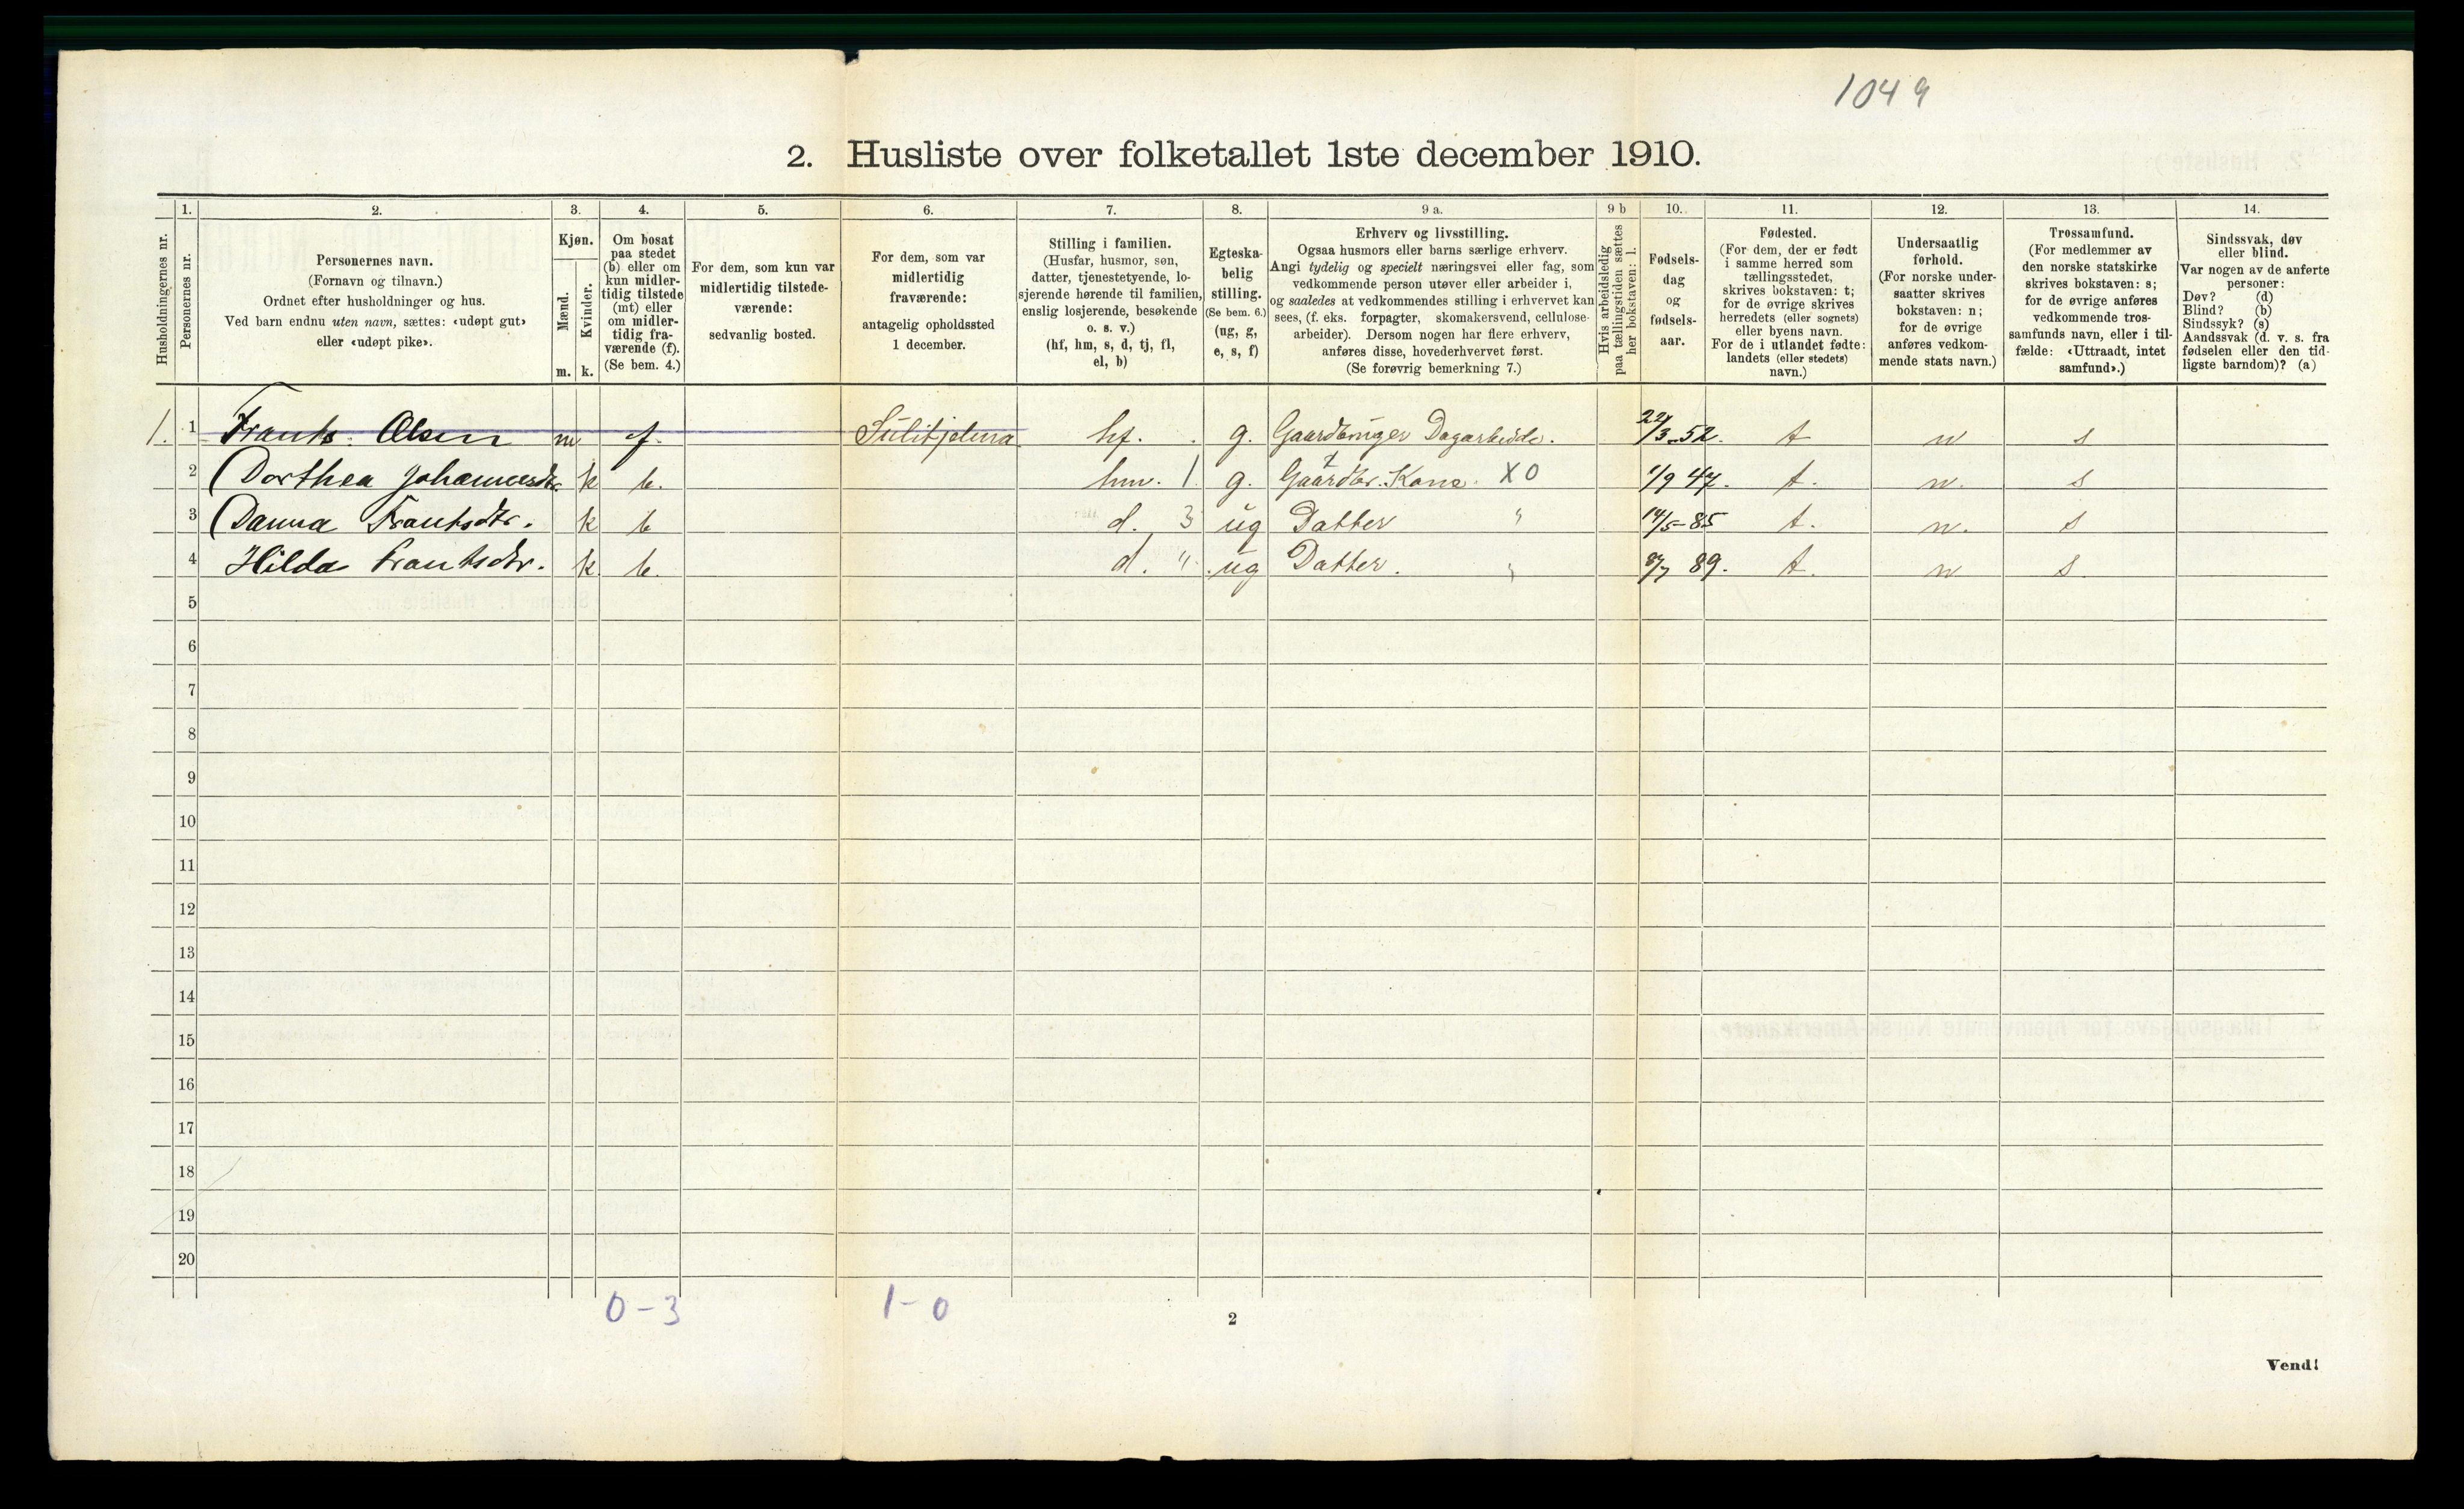 1049
2. Husliste over folketallet 1ste december 1910.
Husholdningernes nr.
1.
Personernes nr.
2.
Personernes navn.
(Fornavn og tilnavn.)
Ordnet efter husholdninger og hus.
Ved barn endnu uten navn, sættes: «udøpt gut»
eller «udøpt pike».
3.
Kjøn.
Mænd.
Kvinder.
m. k.
4.
Om bosat
paa stedet
(b) eller om
kun midler-
tidig tilstede
(mt) eller
om midler-
tidig fra-
værende (f).
(Se bem. 4.)
5.
For dem, som kun var
midlertidig tilstede-
værende:
sedvanlig bosted.
6.
For dem, som var
midlertidig
fraværende:
antagelig opholdssted
1 december.
7.
Stilling i familien.
(Husfar, husmor, søn,
datter, tjenestetyende, lo-
sjerende hørende til familien,
enslig losjerende, besøkende
o. s. v.)
(hf, hm, s, d, tj, fl,
el, b)
8.
Egteska-
belig
stilling.
(Se bem. 6.)
(ug, g,
e, s, f)
9 a.
Erhverv og livsstilling.
Ogsaa husmors eller barns særlige erhverv.
Angi tydelig og specielt næringsvei eller fag, som
vedkommende person utøver eller arbeider i,
og saaledes at vedkommendes stilling i erhvervet kan
sees, (f. eks. forpagter, skomakersvend, cellulose-
arbeider). Dersom nogen har flere erhverv,
anføres disse, hovederhvervet først.
(Se forøvrig bemerkning 7.)
9 b
Hvis arbeidsledig
paa tællingstiden sættes
her bokstaven: l.
10.
Fødsels-
dag
og
fødsels-
aar.
11.
Fødested.
(For dem, der er født
i samme herred som
tællingsstedet,
skrives bokstaven: t;
for de øvrige skrives
herredets (eller sognets)
eller byens navn.
For de i utlandet fødte:
landets (eller stedets)
navn.)
12.
Undersaatlig
forhold.
(For norske under-
saatter skrives
bokstaven: n;
for de øvrige
anføres vedkom-
mende stats navn.)
13.
Trossamfund.
(For medlemmer av
den norske statskirke
skrives bokstaven: s;
for de øvrige anføres
vedkommende tros-
samfunds navn, eller i til-
fælde: «Uttraadt, intet
samfund».)
14.
Sindssvak, døv
eller blind.
Var nogen av de anførte
personer:
Døv? (d)
Blind? (b)
Sindssyk? (s)
Aandssvak (d. v. s. fra
fødselen eller den tid-
ligste barndom)? (a)
1. 1 Frants Olsen m f. Sulitjelma hf. g. Gaardbruger Dagarbeide. 22/3-52. t n s
2 Dorthea Johannesdtr. k b. hm. 1 g. Gaardbr. Kone. X0 1/9 47. t. n. s
3 Danna Frantsdtr. k b d. 3 ug Datter " 14/5-85 t. n. s
4 Hilda Frantsdtr. k b. d. " ug Datter. " 8/7 89. t. n s
5
6
7
8
9
10
11
12
13
14
15
16
17
18
19
20
0-3 1-0
2
Vend!